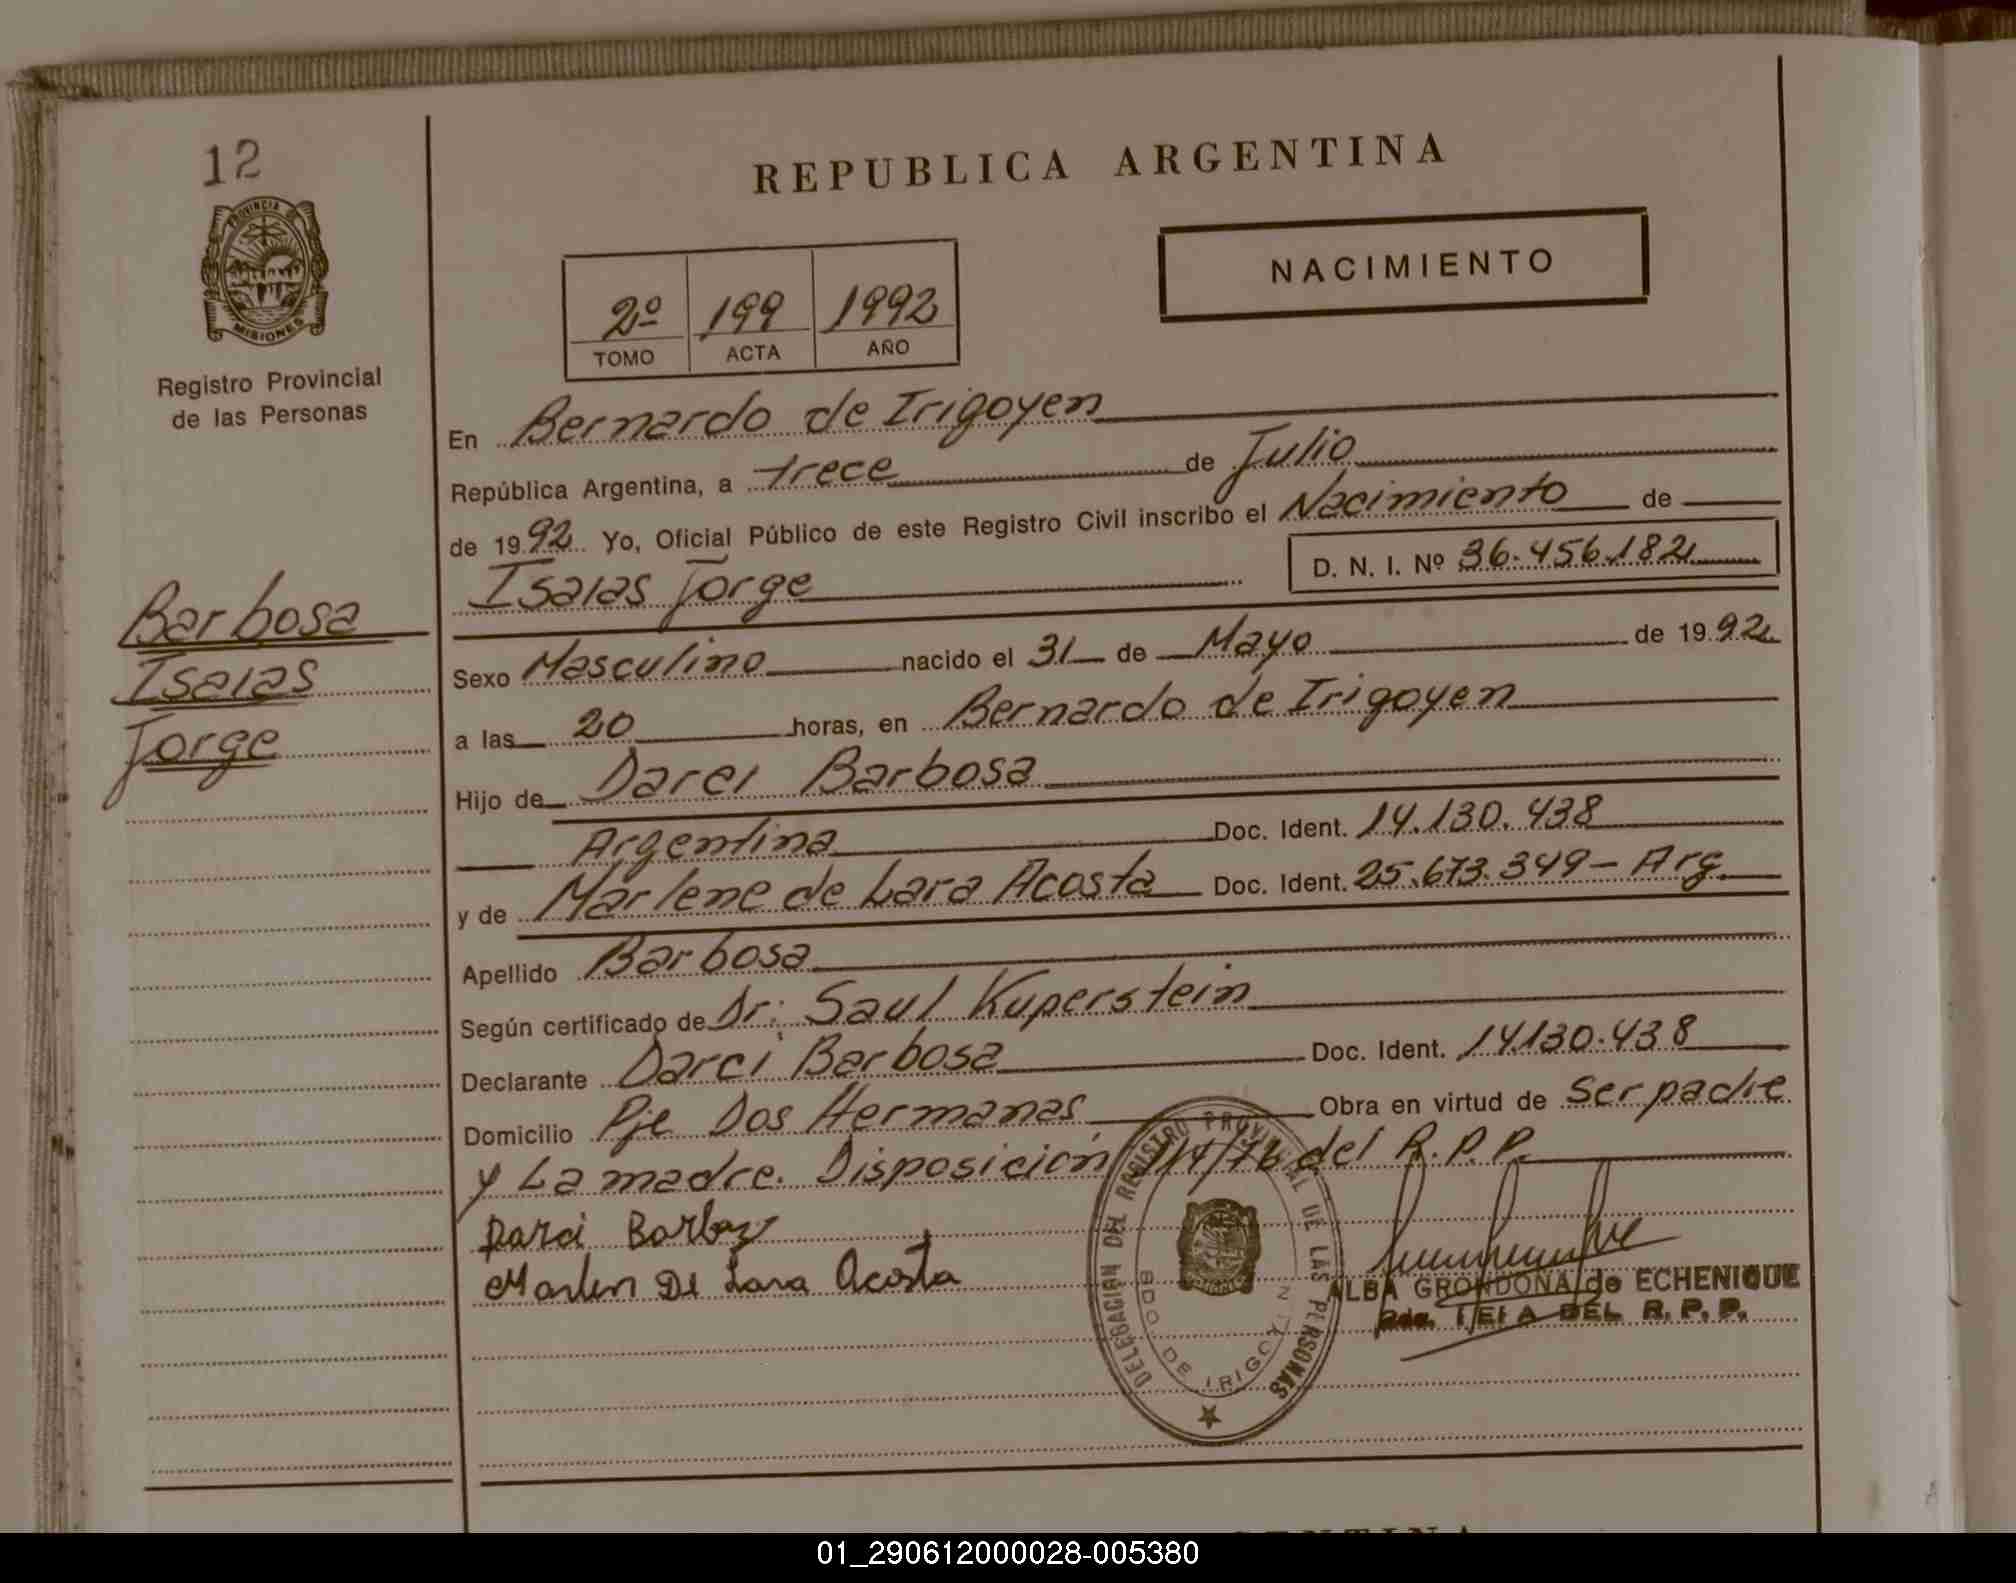 12
PROVINCIA DE
MISIONES
Registro Provincial
de las Personas
Barbosa
Isaias
Jorge
REPUBLICA ARGENTINA
NACIMIENTO
2º 199 1992
TOMO ACTA AÑO
En Bernardo de Irigoyen
República Argentina, a trece de Julio
de 1992 Yo, Oficial Público de este Registro Civil inscribo el Nacimiento de
Isaias Jorge D. N. I. Nº 36.456.182
Sexo Masculino nacido el 31 de Mayo de 1992
a las 20 horas, en Bernardo de Irigoyen
Hijo de Darci Barbosa
Argentina Doc. Ident. 14.130.438
y de Marlene de Lara Acosta Doc. Ident. 25.673.349 - Arg.
Apellido Barbosa
Según certificado de Dr: Saul Kuperstein
Declarante Darci Barbosa Doc. Ident. 14.130.438
Domicilio Pje Dos Hermanas Obra en virtud de Ser padre
y La madre. Disposición del R.P.P.
Darci Barboza
Marlen De Lara Acosta
DELEGACION DEL REGISTRO PROVINCIAL DE LAS PERSONAS
BDO DE IRIGOYEN
ALBA GRONDONA de ECHENIQUE
2da. JEFA DEL R. P. P.
01_290612000028-005380